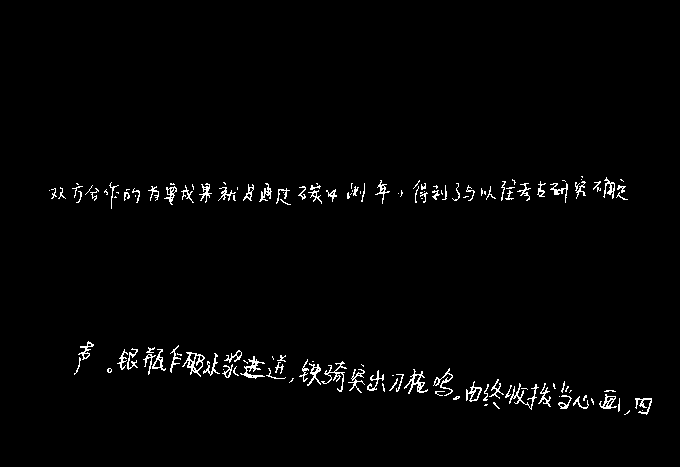 双方合作的首要成果就是通过碳14测年，得到了与以往考古研究确定
声。银瓶乍破水浆迸进，铁骑突出刀枪鸣。曲终收拨当心画，四